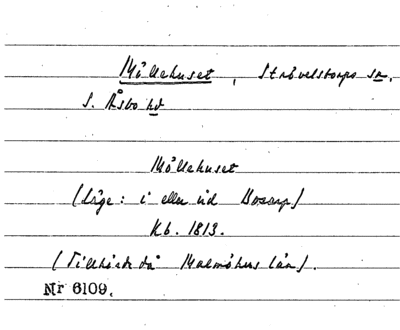 Möllehuset, Strövelstorps sn,
S. Åsbo hd
Möllehuset
(Läge: i eller vid Bosarp)
Kb. 1813.
(Tillhörde då Malmöhus län).
Nr 6109.